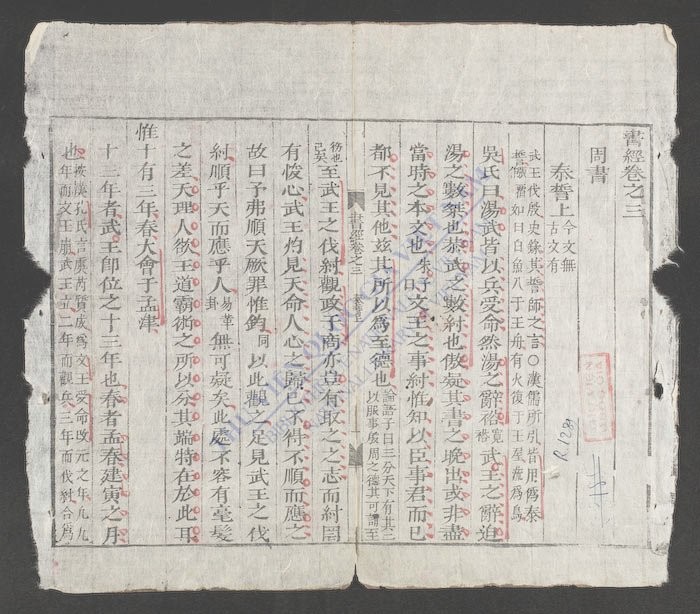 書經卷之三
周書
泰誓上
今文無
古文有
武王伐殷史錄其誓師之言○漢儒所引皆用偽泰
誓如曰白魚入于王舟有火復于王屋流為烏
吳氏曰湯武皆以兵受命然湯之辭裕武王之辭迫
湯之數桀也恭武之數紂也傲疑其書之晚出或非盡
當時之本文也朱子曰文王之事紂惟知以臣事君而已
都不見其他茲其所以為至德也
論語子曰三分天下有其二
以服事殷周之德其可謂至
書經卷之三
至武王之伐紂觀政于商亦豈有取之之志而紂罔
有悛心武王灼見天命人心之歸已不得不順而應之
故曰予弗順天厥罪惟鈞以此觀之足見武王之伐
紂順乎天而應乎人
易革
卦
無可疑矣此處不容有毫髮
之差天理人欲王道霸術之所以分其端特在於此耳
惟十有三年春大會于孟津
十三年者武王即位之十三年也春者孟春建寅之月
也漢孔氏言虞芮質成為文王受命改元之年凡九
年而文王崩武王立二年而觀兵三年而伐紂合為
R.1289